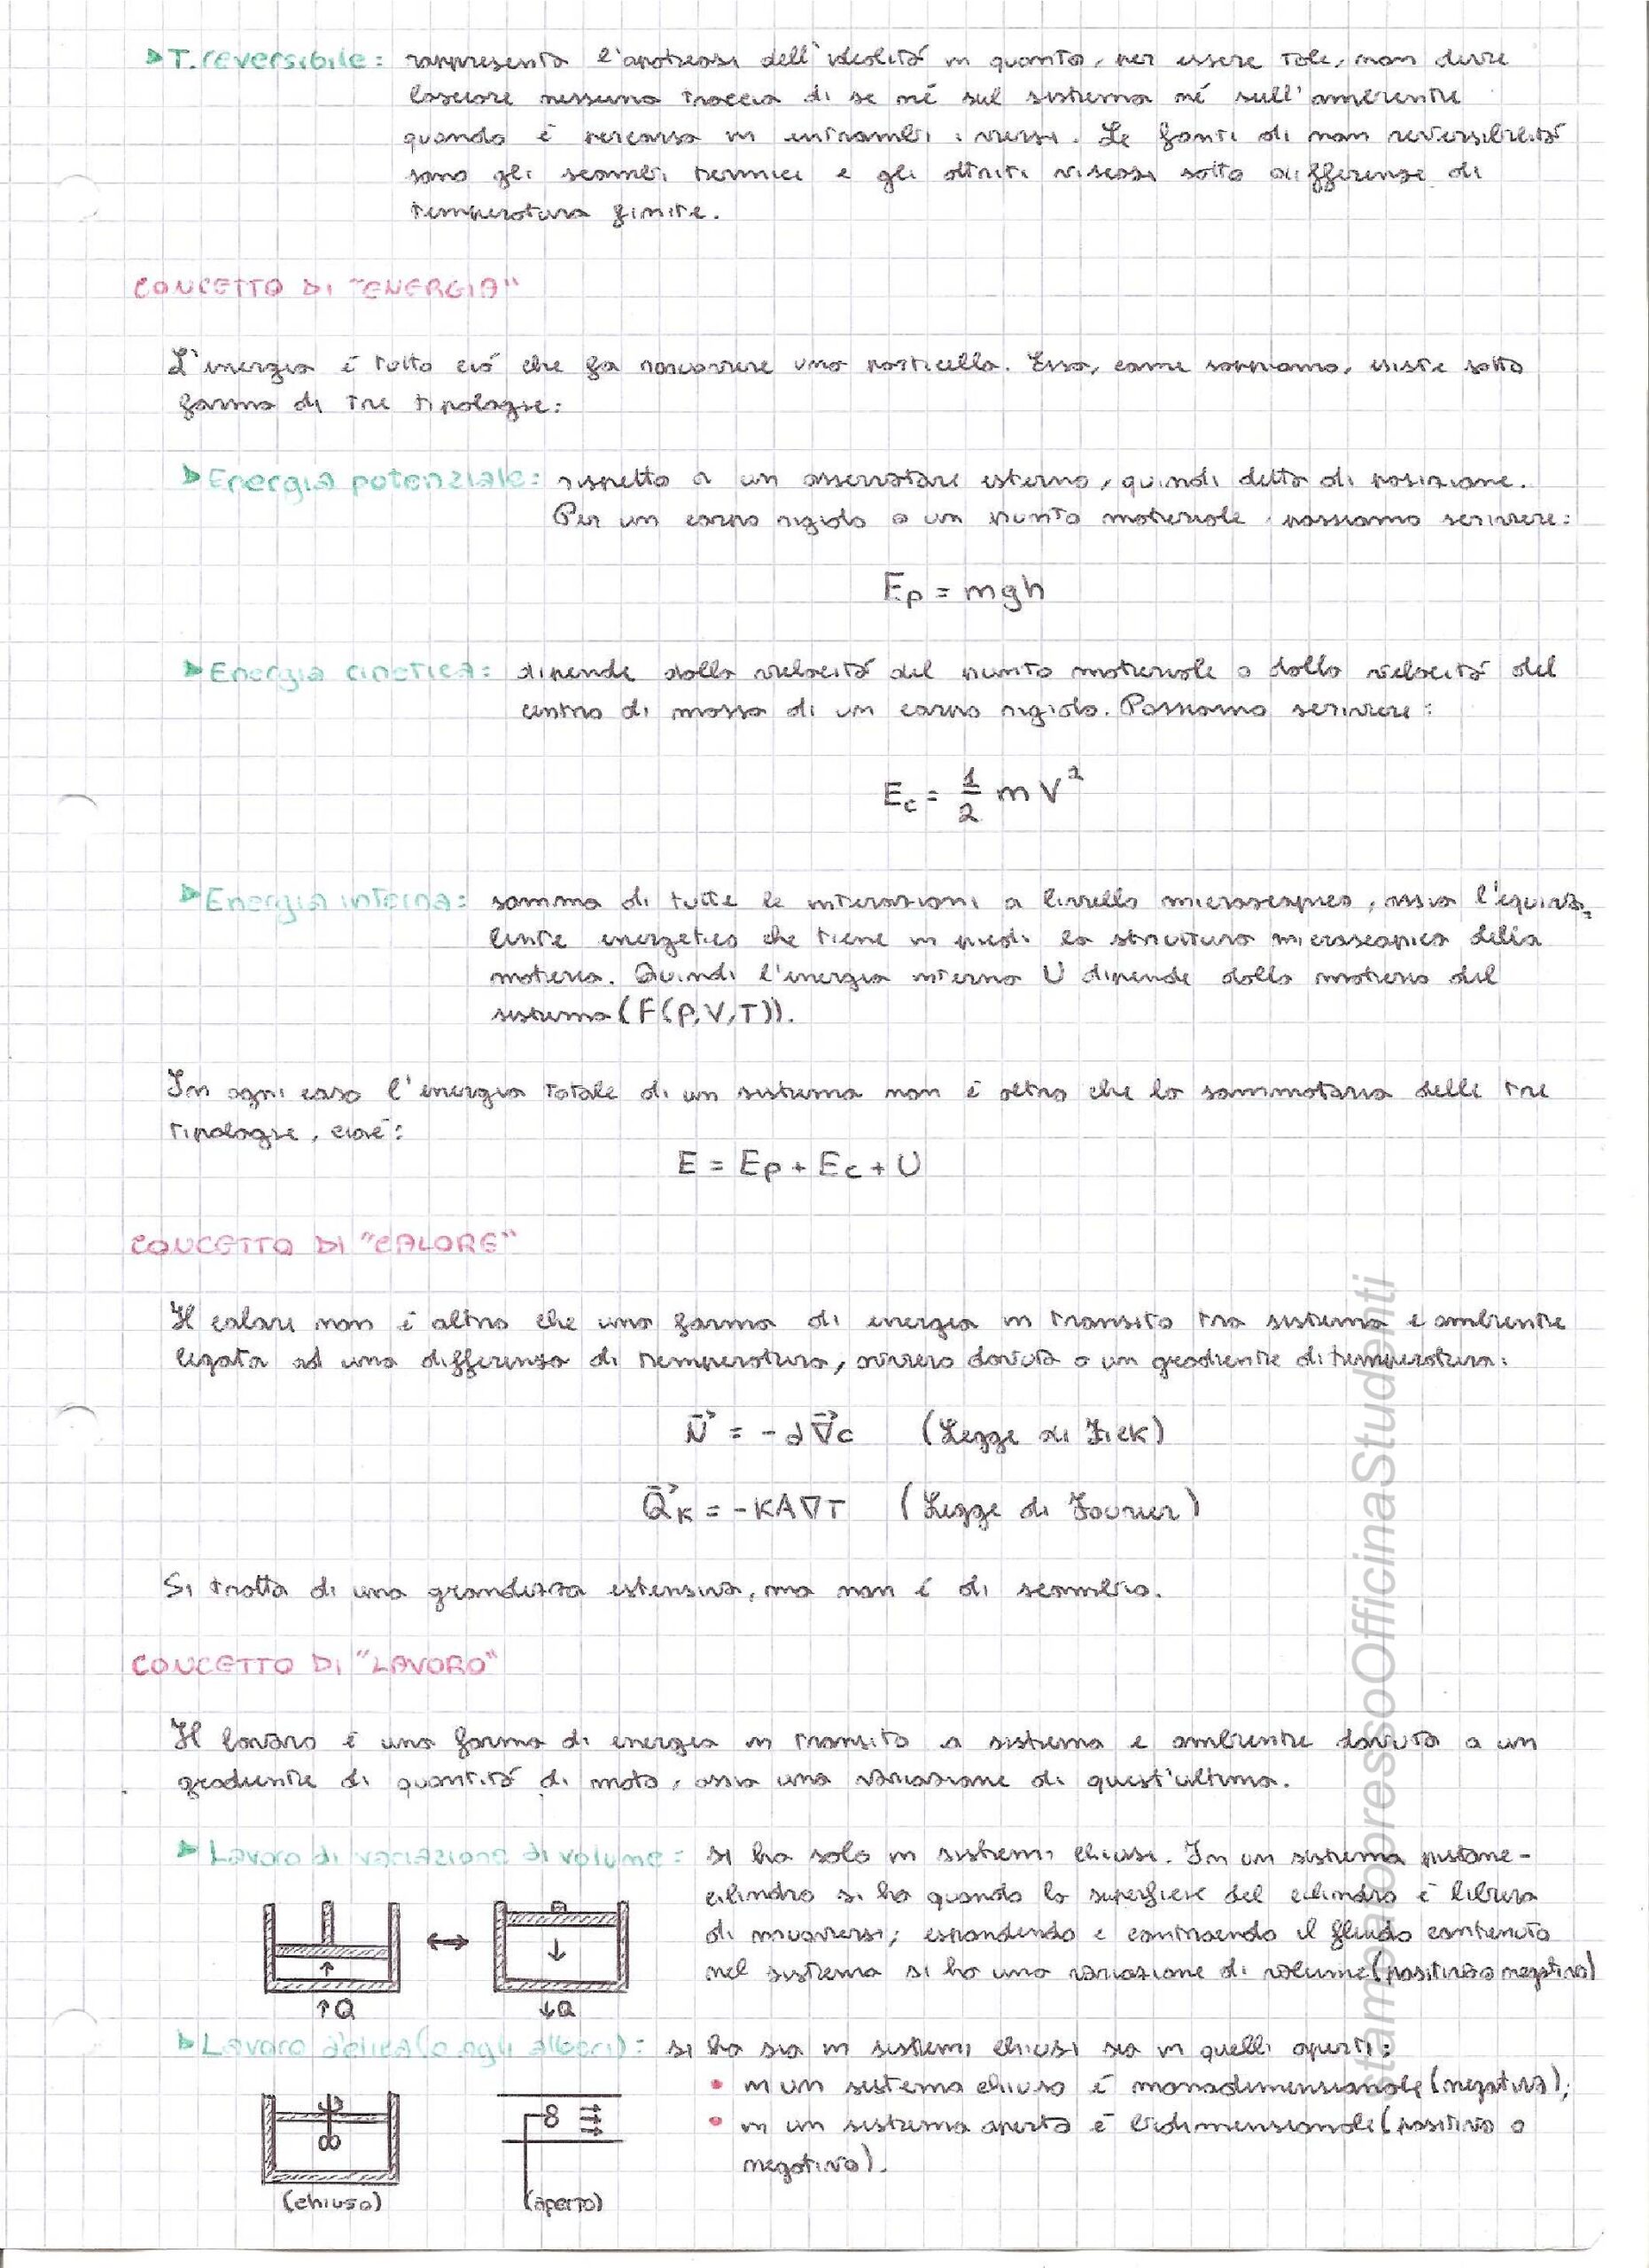 T. reversibile: rappresenta l'apoteosi dell'idealità in quanto, per essere tale, non deve
lasciare nessuna traccia di se né sul sistema né sull'ambiente
quando è percorsa in entrambi i versi. Le fonti di non reversibilità
sono gli scambi termici e gli attriti viscosi sotto differenze di
temperatura finite.
CONCETTO DI "ENERGIA"
L'energia è tutto ciò che fa percorrere una particella. Essa, come sappiamo, esiste sotto
forma di tre tipologie:
Energia potenziale: rispetto a un osservatore esterno, quindi detta di posizione.
Per un corpo rigido o un punto materiale possiamo scrivere:
Ep = mgh
Energia cinetica: dipende dalla velocità del punto materiale o dalla velocità del
centro di massa di un corpo rigido. Possiamo scrivere:
Ec = 1/2 m V²
Energia interna: somma di tutte le interazioni a livello microscopico, ossia l'equiva=
lente energetico che tiene in piedi la struttura microscopica della
materia. Quindi l'energia interna U dipende dalla materia del
sistema (F(P,V,T)).
In ogni caso l'energia totale di un sistema non è altro che la sommatoria delle tre
tipologie, cioè:
E = Ep + Ec + U
CONCETTO DI "CALORE"
Il calore non è altro che una forma di energia in transito tra sistema e ambiente
legata ad una differenza di temperatura, ovvero dovuta a un gradiente di temperatura:
N⃗ = -∂∇⃗c (Legge di Fick)
Q̇⃗K = -KA∇T (Legge di Fourier)
Si tratta di una grandezza estensiva, ma non è di scambio.
CONCETTO DI "LAVORO"
Il lavoro è una forma di energia in transito a sistema e ambiente dovuta a un
gradiente di quantità di moto, ossia una variazione di quest'ultima.
Lavoro di variazione di volume: si ha solo in sistemi chiusi. In un sistema pistone-
cilindro si ha quando la superficie del cilindro è libera
di muoversi; espandendo e contraendo il fluido contenuto
nel sistema si ha una variazione di volume (positiva o negativa)
↑Q ↓Q
Lavoro d'elica (o agli alberi): si ha sia in sistemi chiusi sia in quelli aperti:
• in un sistema chiuso è monodimensionale (negativo);
• in un sistema aperto è bidimensionale (positivo o
negativo).
(chiuso) (aperto)
stampatopressoOfficinaStudenti